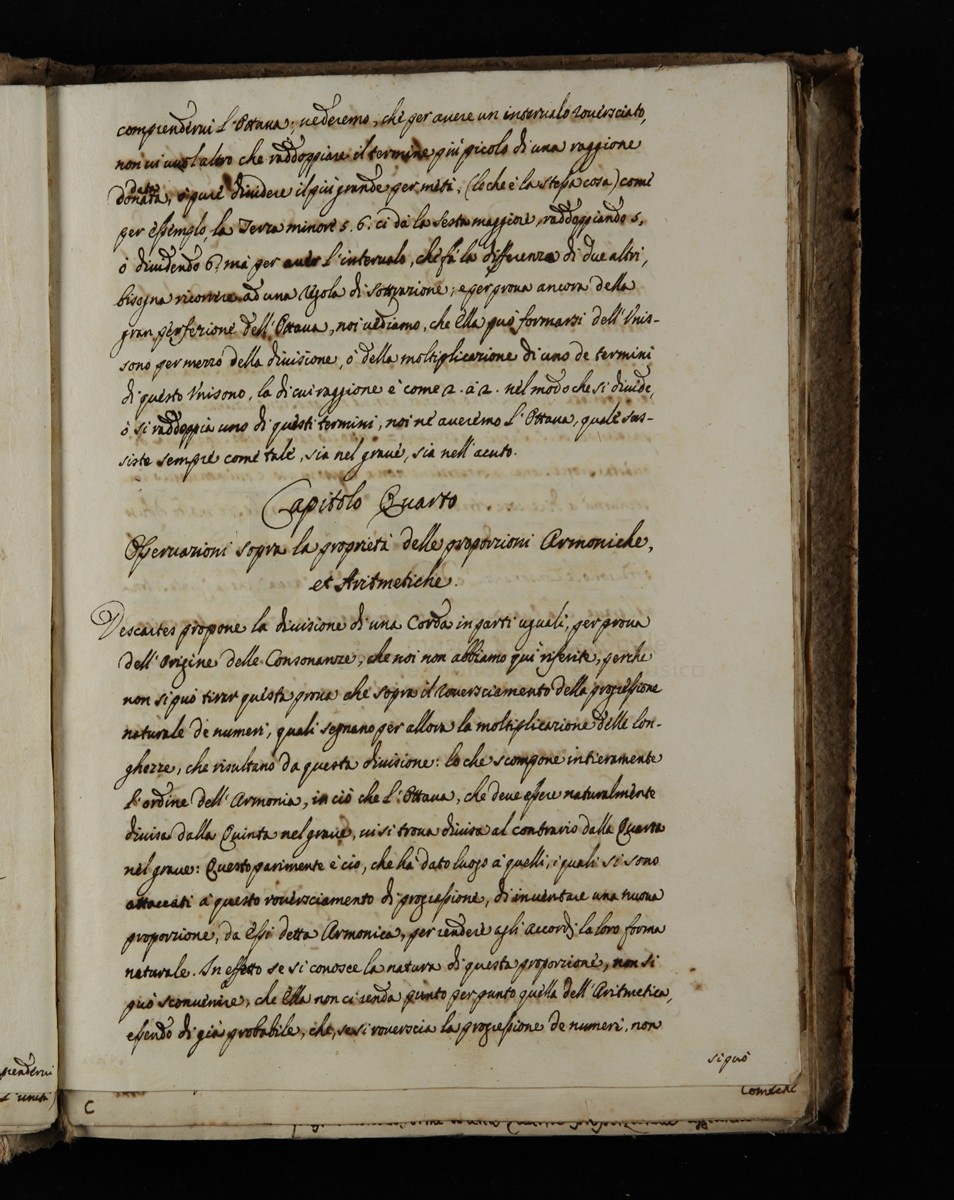 comprendervi l'Ottava; vederemo, che per avere un intervalo roversciato,
non vi vuol altro che raddoppiare il termine più picolo di una raggione
data
donata, ò pure dividere il più grande per metà, (lo che è la stessa cosa) come
per essemplo, la Terza minore 5. 6. ci dà la Sesta maggiore, raddoggiando 5,
ò dividendo 6: mà per aver l'intervalo, che fà la differenza di due altri,
bisogna ricorrere ad una Regola di Sottrazione; e per prova ancora della
gran perfezione dell'Ottava, noi vediamo, che Ella può formarsi dell'Vnis-
sono per mezzo della divisione, ò della moltiplicazione di uno de termini
di questo Vnisono, la di cui raggione è come 2. à 2. nel modo che si divide,
ò si raddoppia uno di questi termini, noi ne averemo l'Ottava, quale sus-
siste sempre come tale, sia nel grave, sia nell'acuto.
Capitolo Quarto
Osservazioni sopra la proprietà delle proporzioni Armoniche,
et Aritmetiche.
Descartes propone la divisione di una Corda in parti uguali, per prova
dell'Origine delle Consonanze, che noi non abbiamo qui riferite, perche
non si può tirar questa prova che sopra il roversciamento della progressione
naturale de numeri, quali segnano per allora la moltiplicazione delle lon-
ghezze, che risultano da questa divisione: lo che scompone intieramente
l'ordine dell'Armonia, in ciò che l'Ottava, che deve essere naturalmente
divisa dalla Quinta nel grave, vi si trova divisa al contrario dalla Quarta
nel grave: Questo parimente è ciò, che hà dato luogo à quelli, i quali si sono
attaccati à questo roversciamento di progressione, di inventare una nuova
proporzione, da Essi detta Armonica, per rendere agli Accordj la loro forma
naturale. In effetto se si conosce la natura di questa proporzione, non si
può sconvenire, che Ella non ci renda punto per punto quella dell'Aritmetica,
essendo di già probabile, che, se si roverscia la progressione de numeri, non
si può
C